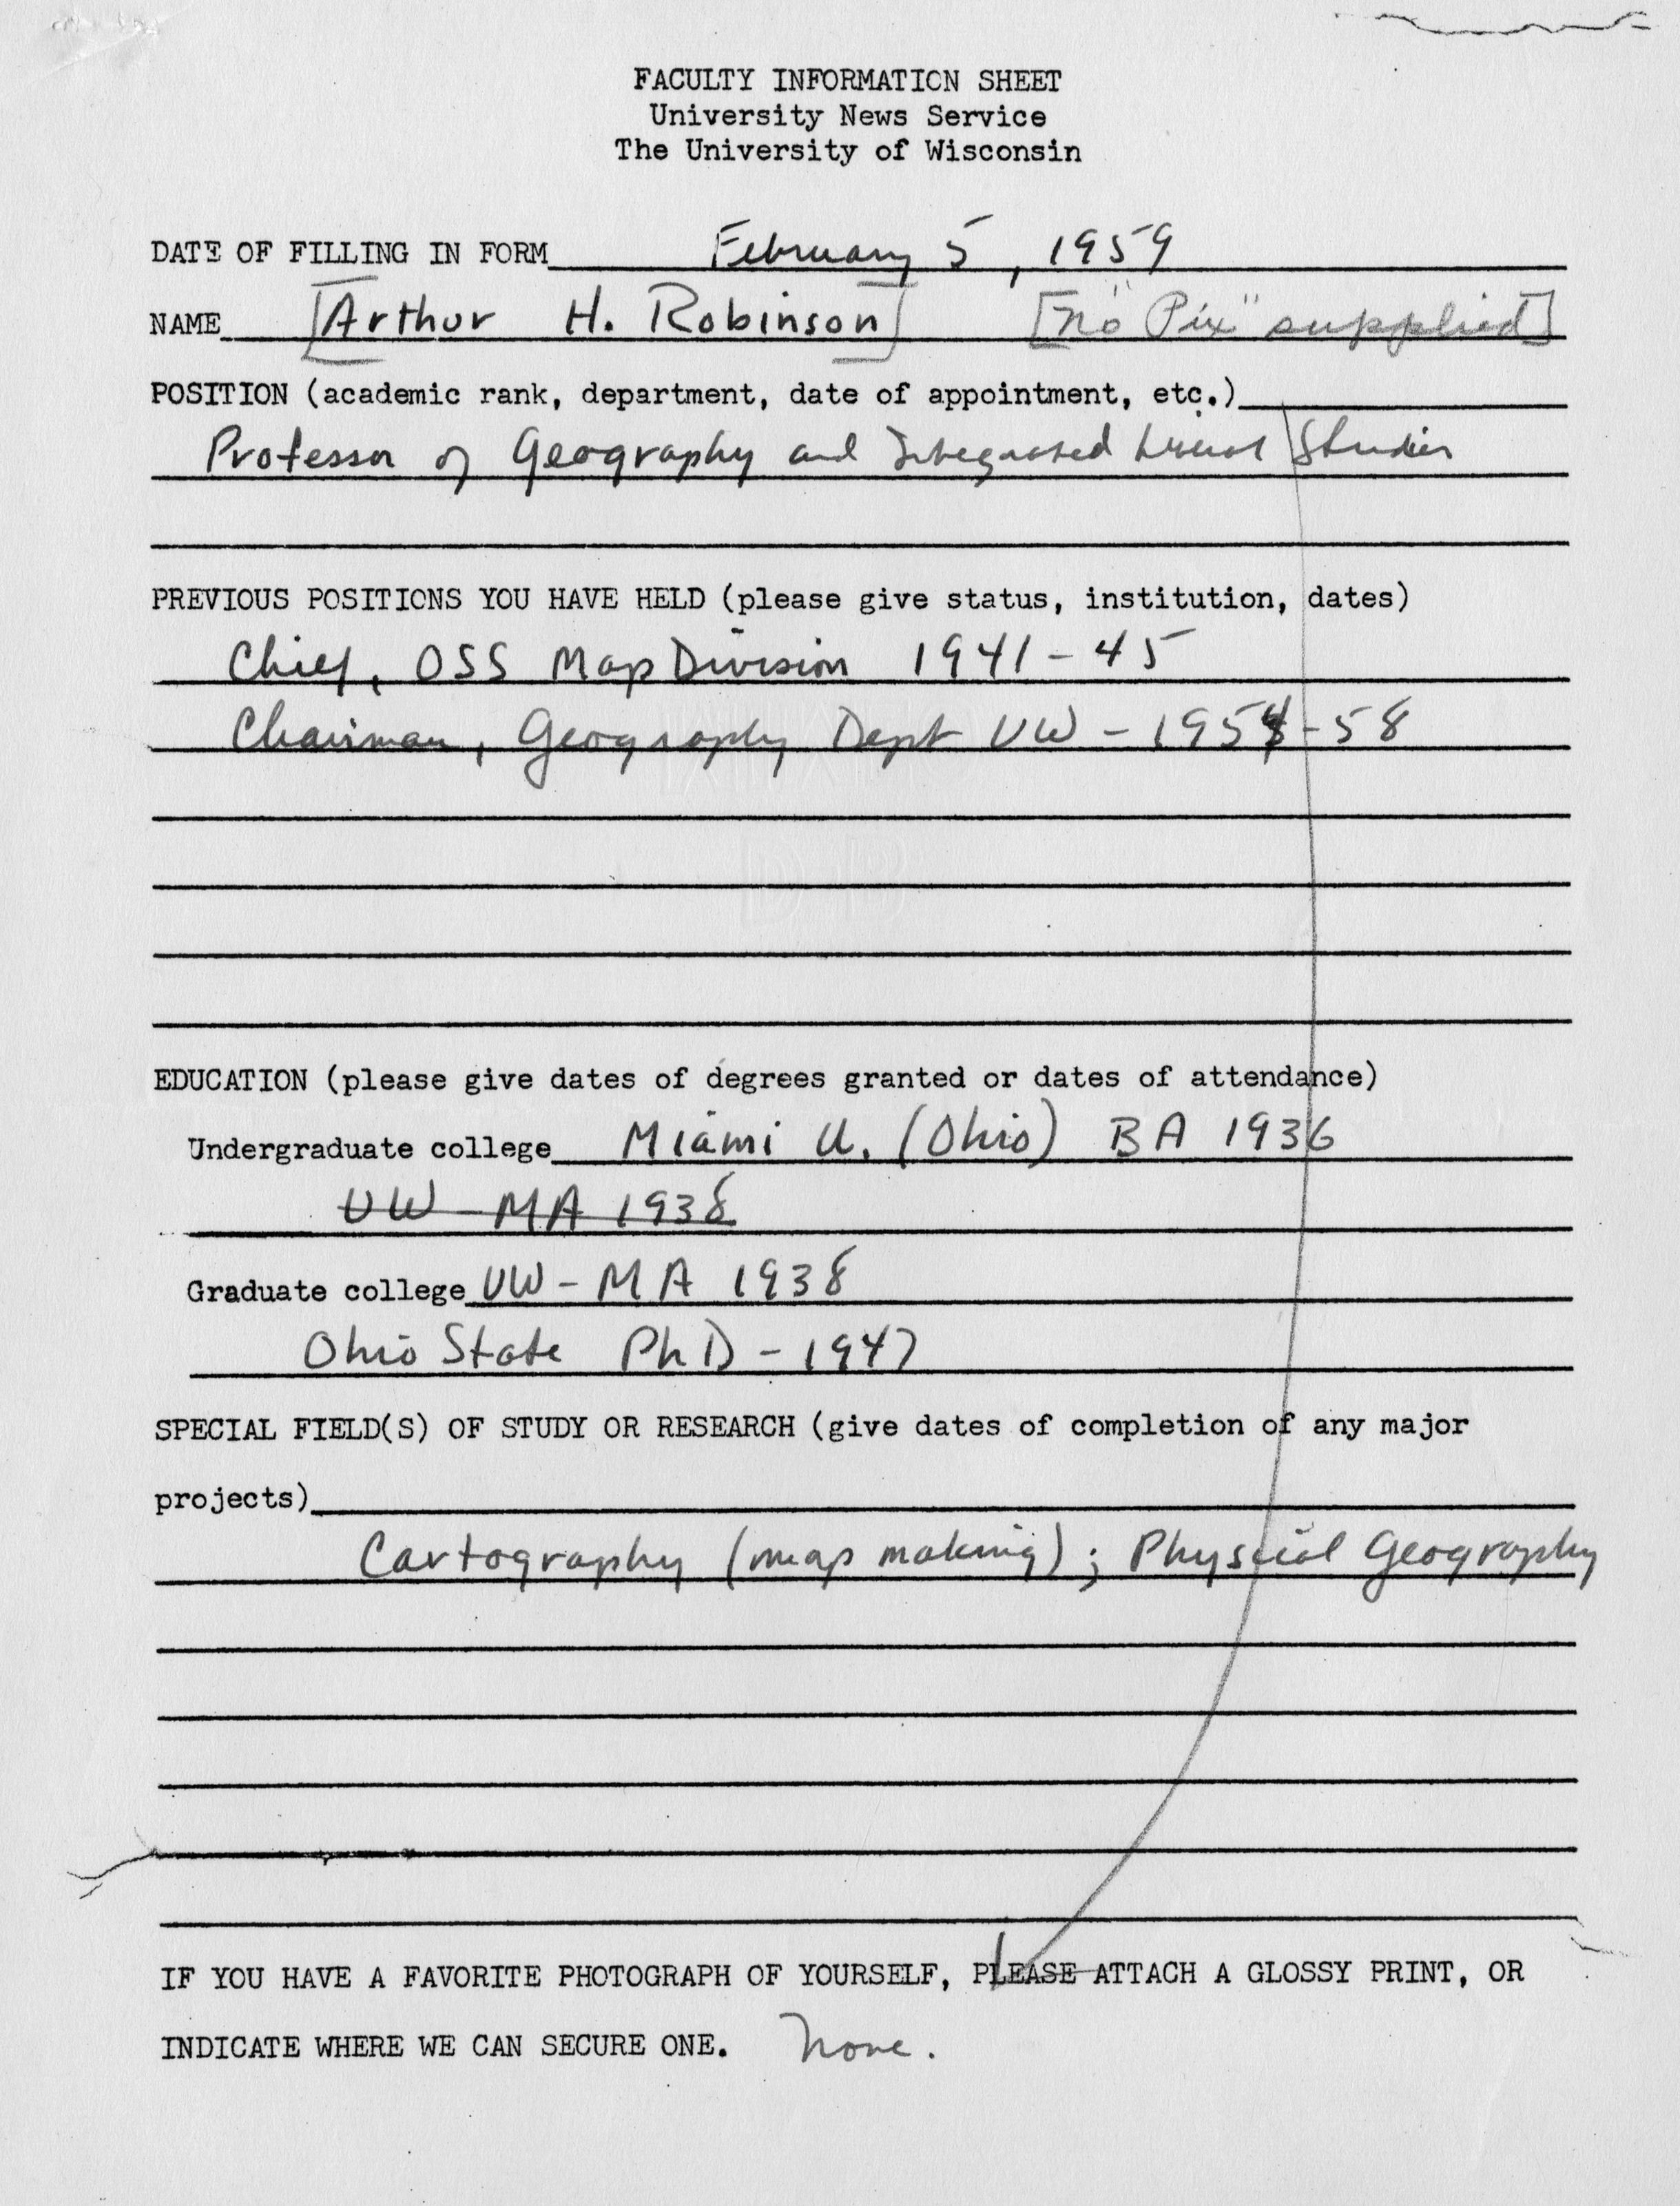 FACULTY INFORMATION SHEET
University News Service
The University of Wisconsin
DATE OF FILLING IN FORM February 5, 1959
NAME [Arthur H. Robinson] [no "Pix" supplied]
POSITION (academic rank, department, date of appointment, etc.)
Professor of Geography and Integrated Liberal Studies
PREVIOUS POSITIONS YOU HAVE HELD (please give status, institution, dates)
Chief, OSS Map Division 1941-45
Chairman, Geography Dept UW - 1954-58
EDUCATION (please give dates of degrees granted or dates of attendance)
Undergraduate college Miami U. (Ohio) BA 1936
UW - MA 1938
Graduate college UW - MA 1938
Ohio State PhD - 1947
SPECIAL FIELD(S) OF STUDY OR RESEARCH (give dates of completion of any major
projects)
Cartography (map making); Physcial Geography
IF YOU HAVE A FAVORITE PHOTOGRAPH OF YOURSELF, PLEASE ATTACH A GLOSSY PRINT, OR
INDICATE WHERE WE CAN SECURE ONE. None.